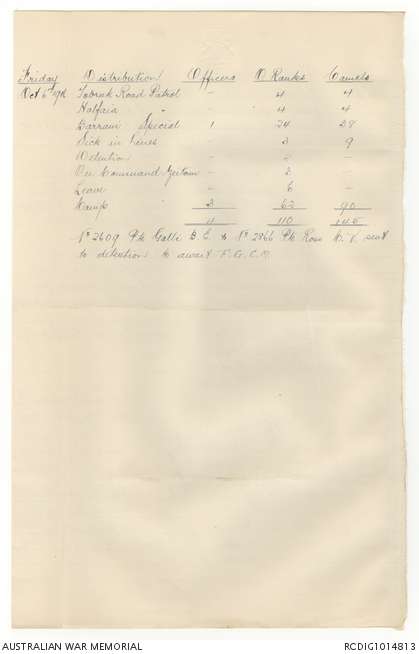 Friday Distribution Officers O Ranks Camels
Oct 6th 1916 Tobruk Road Patrol - 4 4
Halfaia " - 4 4
Barrani Special 1 24 28
Sick in Lines - 3 9
Detention - 2 -
On Command - 2 -
Leave - 6 -
Camp 3 62 90
4 110 145
No 2609 Pte Galli B. C. & No 2866 Pte Ross sent
to detention to await F. G. C. M.
AUSTRALIAN WAR MEMORIAL RCDIG1014813